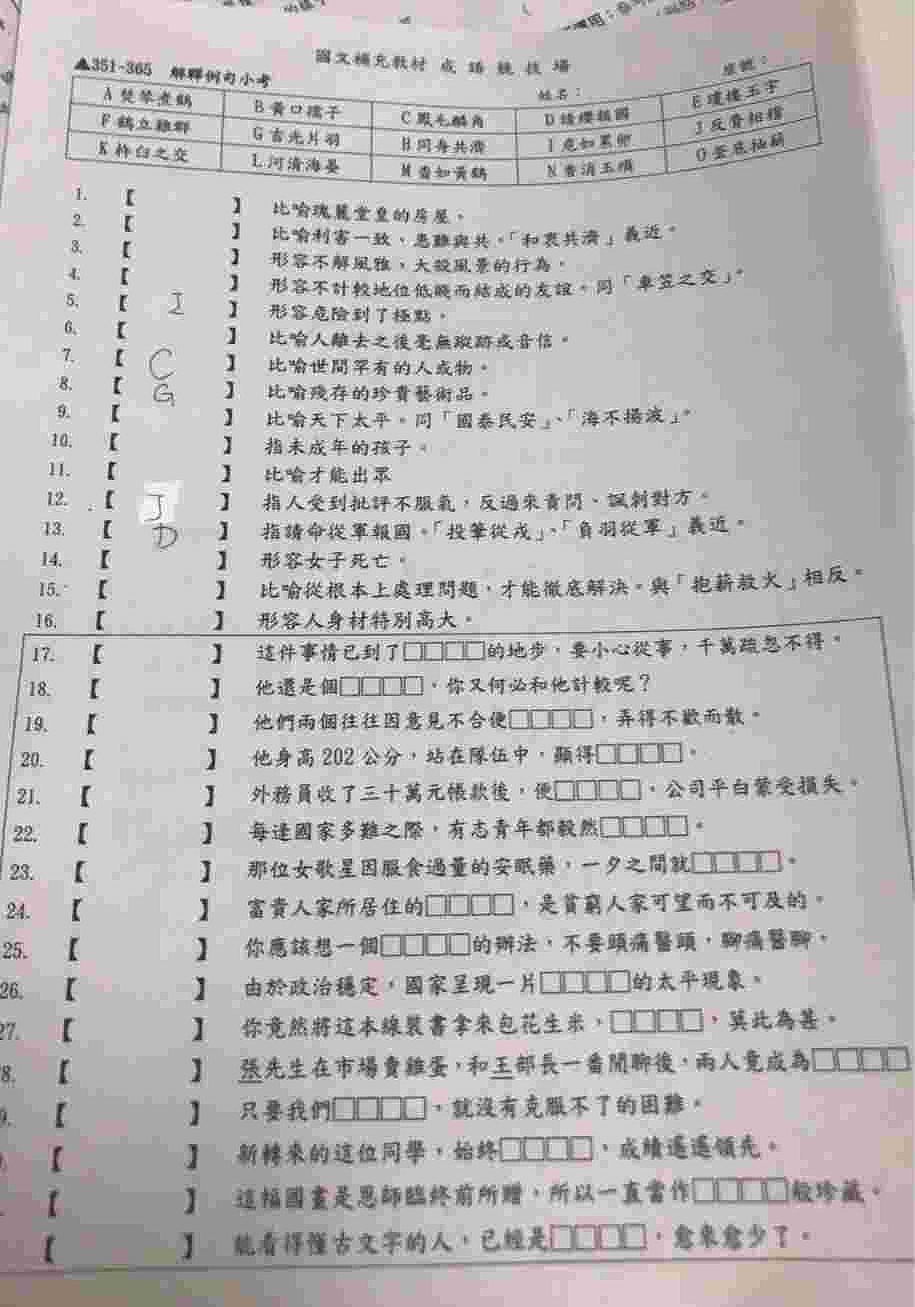 國文補充教材 成語競技場
▲351-365 解釋例句小考 姓名： 座號：
A 焚琴煮鶴 B 黃口孺子 C 鳳毛麟角 D 請纓報國 E 瓊樓玉宇
F 鶴立雞群 G 吉光片羽 H 同舟共濟 I 危如累卵 J 反脣相稽
K 杵臼之交 L 河清海晏 M 杳如黃鶴 N 香消玉殞 O 釜底抽薪
1. 【 】 比喻瑰麗堂皇的房屋。
2. 【 】 比喻利害一致、患難與共。「和衷共濟」義近。
3. 【 】 形容不解風雅，大殺風景的行為。
4. 【 】 形容不計較地位低賤而結成的友誼。同「車笠之交」。
5. 【 I 】 形容危險到了極點。
6. 【 】 比喻人離去之後毫無蹤跡或音信。
7. 【 C 】 比喻世間罕有的人或物。
8. 【 G 】 比喻殘存的珍貴藝術品。
9. 【 】 比喻天下太平。同「國泰民安」、「海不揚波」。
10. 【 】 指未成年的孩子。
11. 【 】 比喻才能出眾
12. 【 J 】 指人受到批評不服氣，反過來責問、諷刺對方。
13. 【 D 】 指請命從軍報國。「投筆從戎」、「負羽從軍」義近。
14. 【 】 形容女子死亡。
15. 【 】 比喻從根本上處理問題，才能徹底解決。與「抱薪救火」相反。
16. 【 】 形容人身材特別高大。
17. 【 】 這件事情已到了□□□□的地步，要小心從事，千萬疏忽不得。
18. 【 】 他還是個□□□□，你又何必和他計較呢？
19. 【 】 他們兩個往往因意見不合便□□□□，弄得不歡而散。
20. 【 】 他身高 202 公分，站在隊伍中，顯得□□□□。
21. 【 】 外務員收了三十萬元帳款後，便□□□□，公司平白蒙受損失。
22. 【 】 每逢國家多難之際，有志青年都毅然□□□□。
23. 【 】 那位女歌星因服食過量的安眠藥，一夕之間就□□□□。
24. 【 】 富貴人家所居住的□□□□，是貧窮人家可望而不可及的。
25. 【 】 你應該想一個□□□□的辦法，不要頭痛醫頭，腳痛醫腳。
26. 【 】 由於政治穩定，國家呈現一片□□□□的太平現象。
27. 【 】 你竟然將這本線裝書拿來包花生米，□□□□，莫此為甚。
8. 【 】 張先生在市場賣雞蛋，和王部長一番閒聊後，兩人竟成為□□□□
9. 【 】 只要我們□□□□，就沒有克服不了的困難。
【 】 新轉來的這位同學，始終□□□□，成績遙遙領先。
【 】 這幅國畫是恩師臨終前所贈，所以一直當作□□□□般珍藏。
【 】 能看得懂古文字的人，已經是□□□□，愈來愈少了。